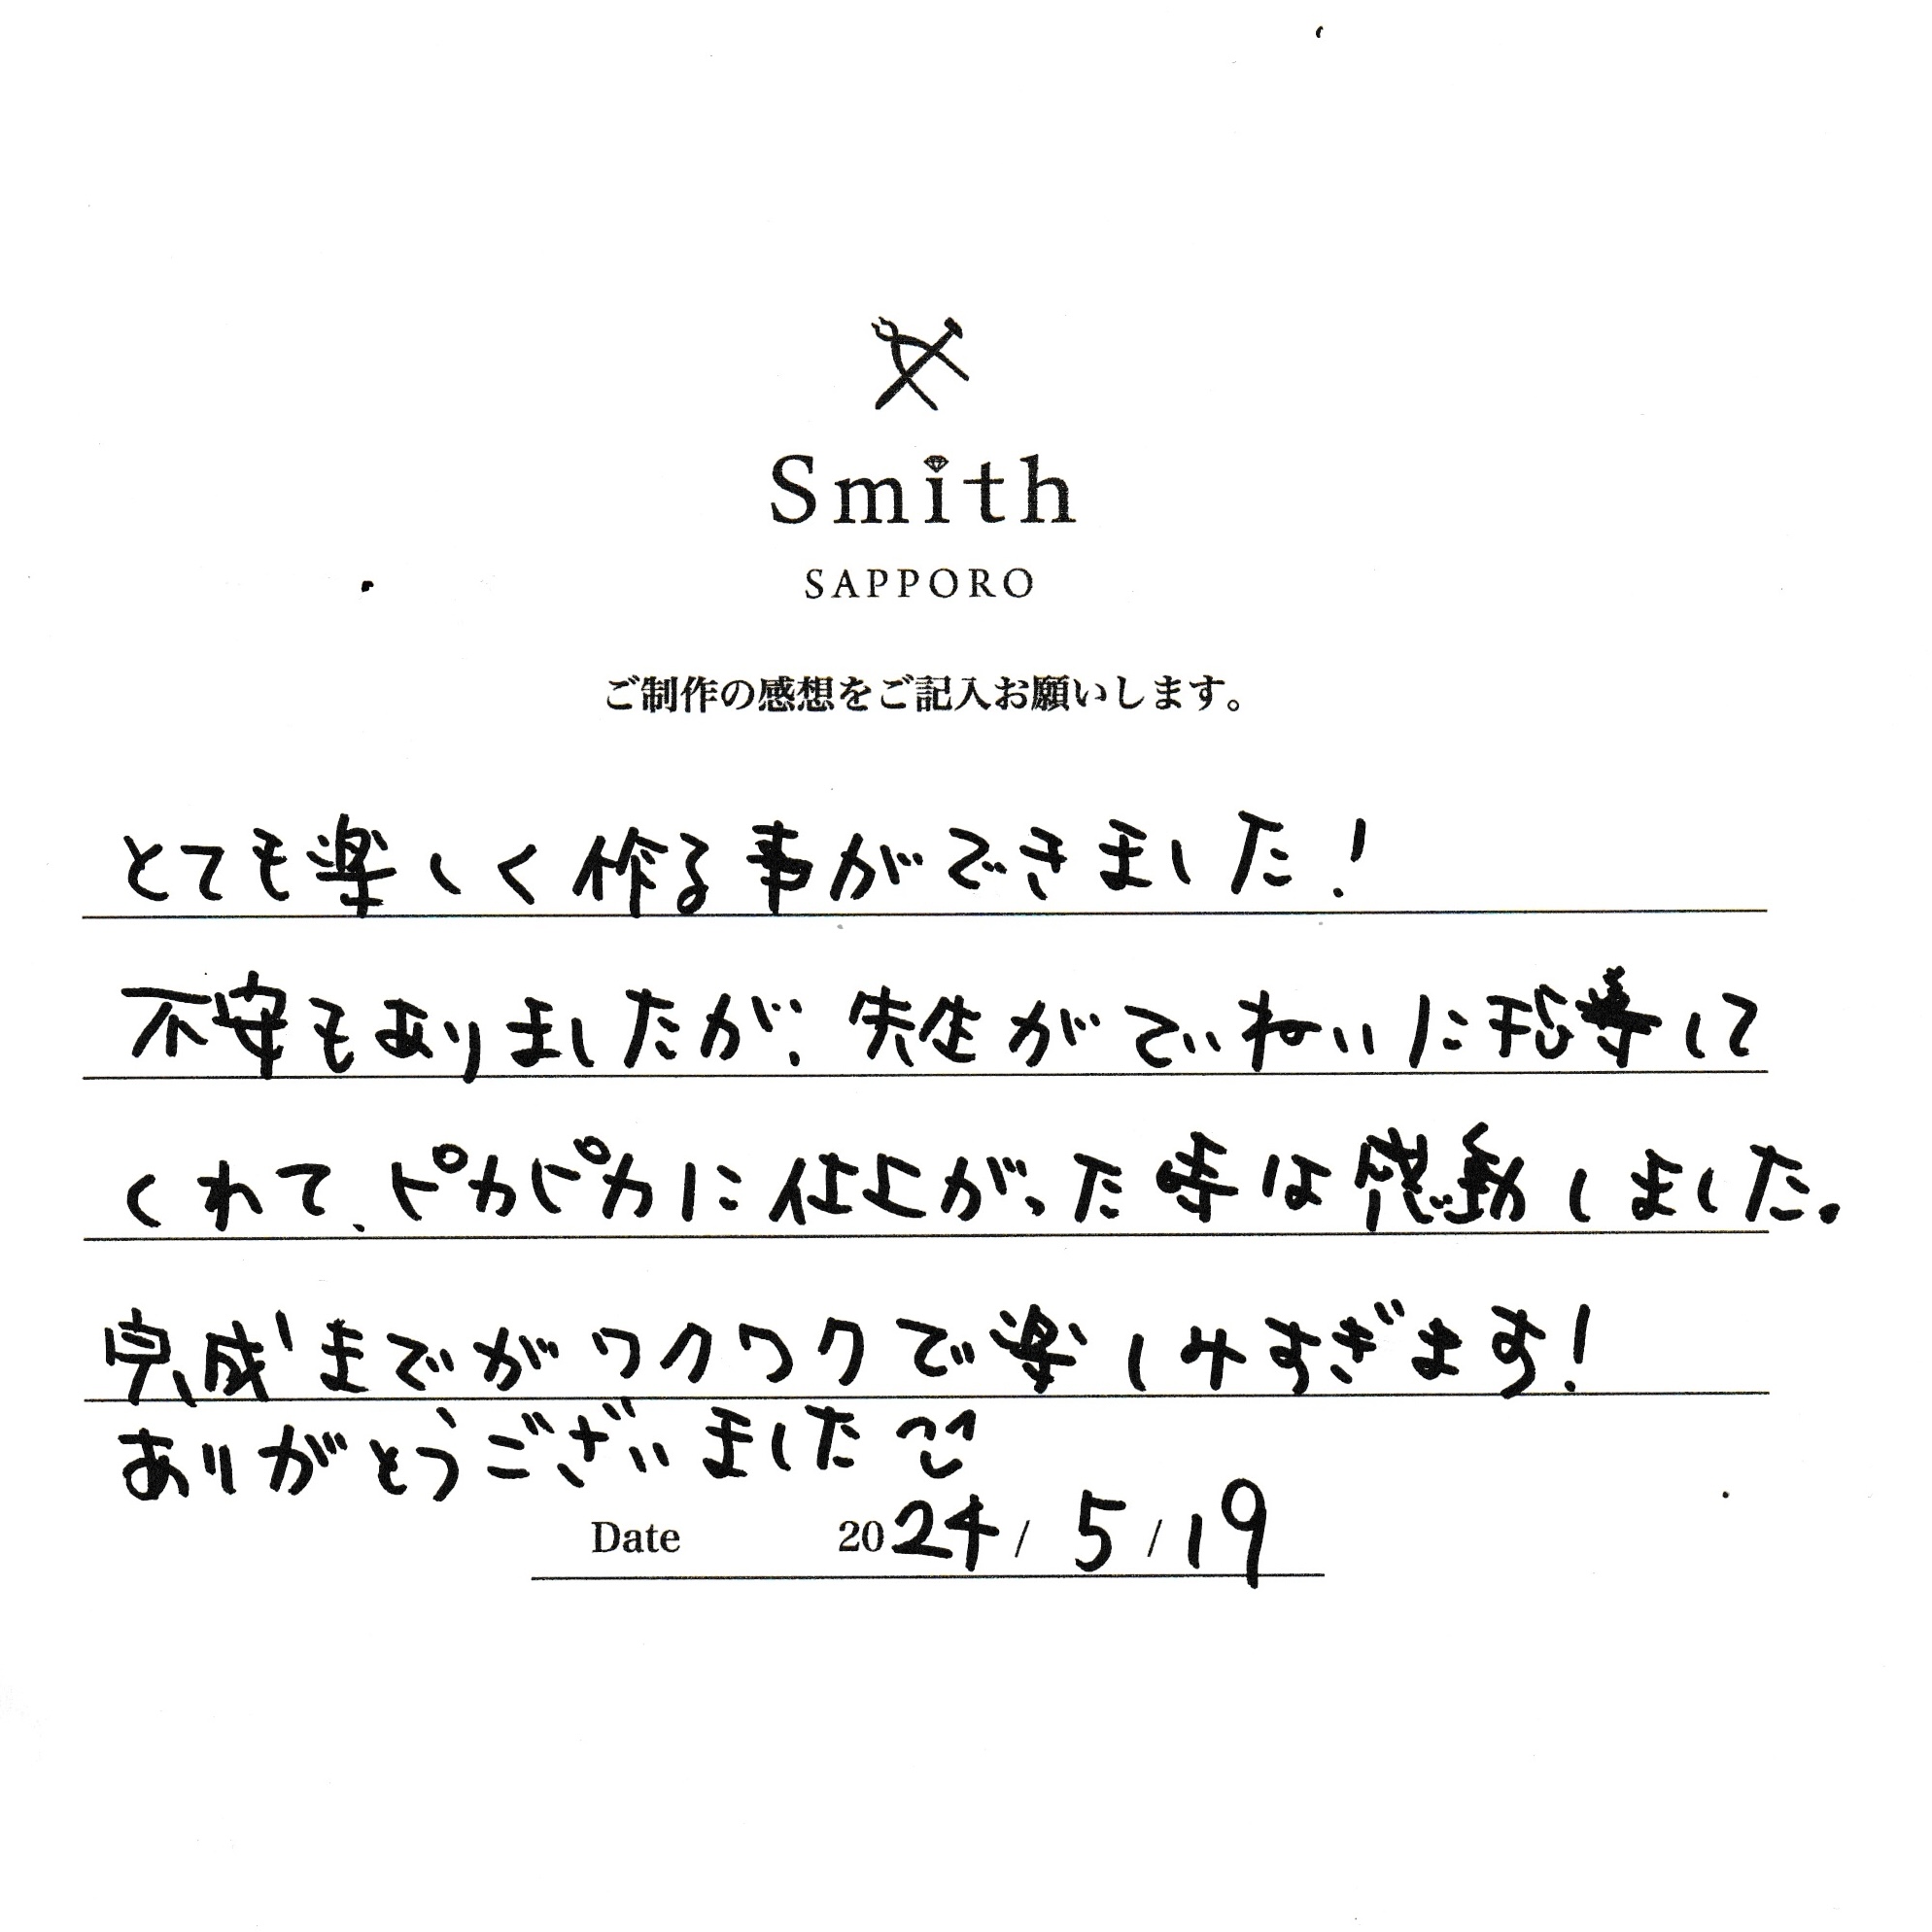 Smith
SAPPORO
ご制作の感想をご記入お願いします。
とても楽しく作る事ができました!
不安もありましたが、先生がていねいに指導して
くれて、ピカピカに仕上がった時は感動しました。
完成までがワクワクで楽しみすぎます!
ありがとうございました
Date 2024 / 5 / 19